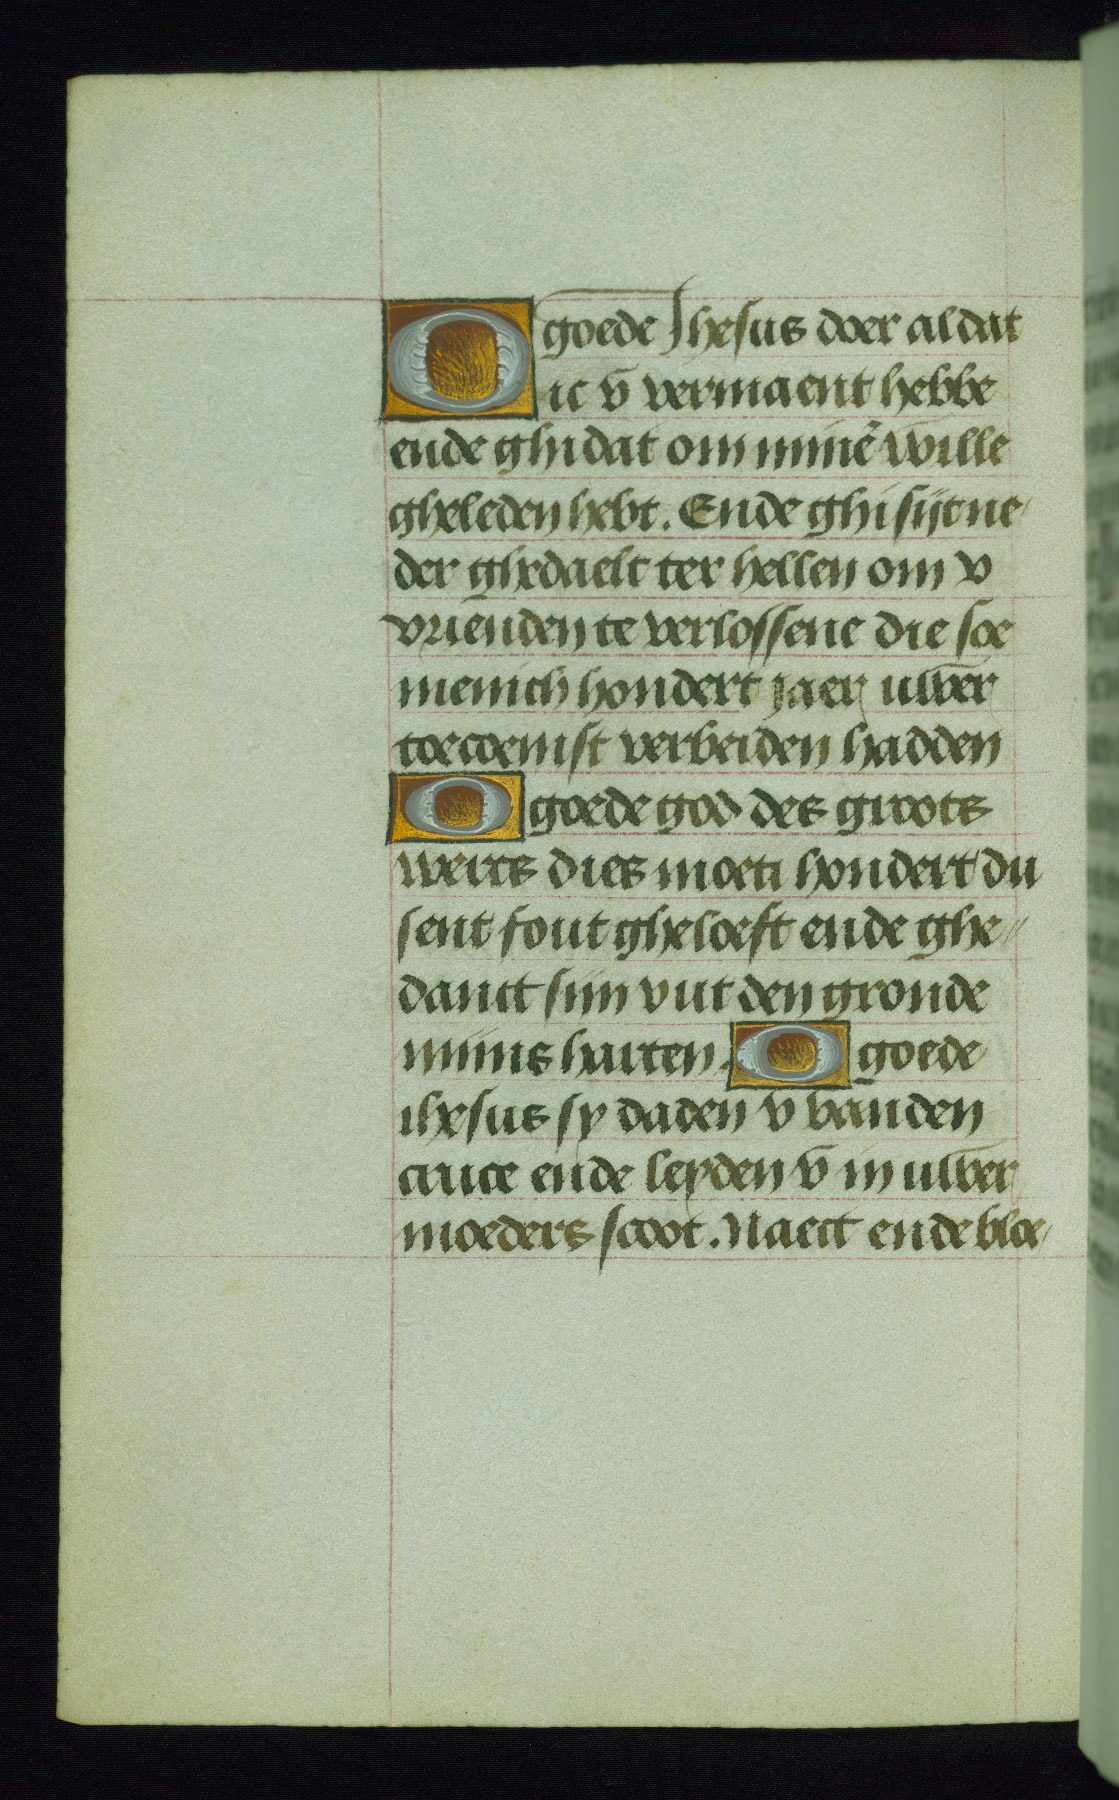 O goede Jhesus doer al dat
ic v̄ vermaent hebbe
ende ghi dat om mine̅ wille
gheleden hebt. Ende ghi sijt ne
der ghedaelt ter hellen om v
vrienden te verlossene die soe
menich hondert jaer uwer
toecoemst verbeiden hadden
O goede god des groots
wercs dies moeti hondert du
sent fout gheloeft ende ghe
danct sijn vut den gronde
mijns harten. O goede
ihesus sy daden v vanden
cruce ende leyden v̄ in uwer
moeders scoot. Naect ende bloe